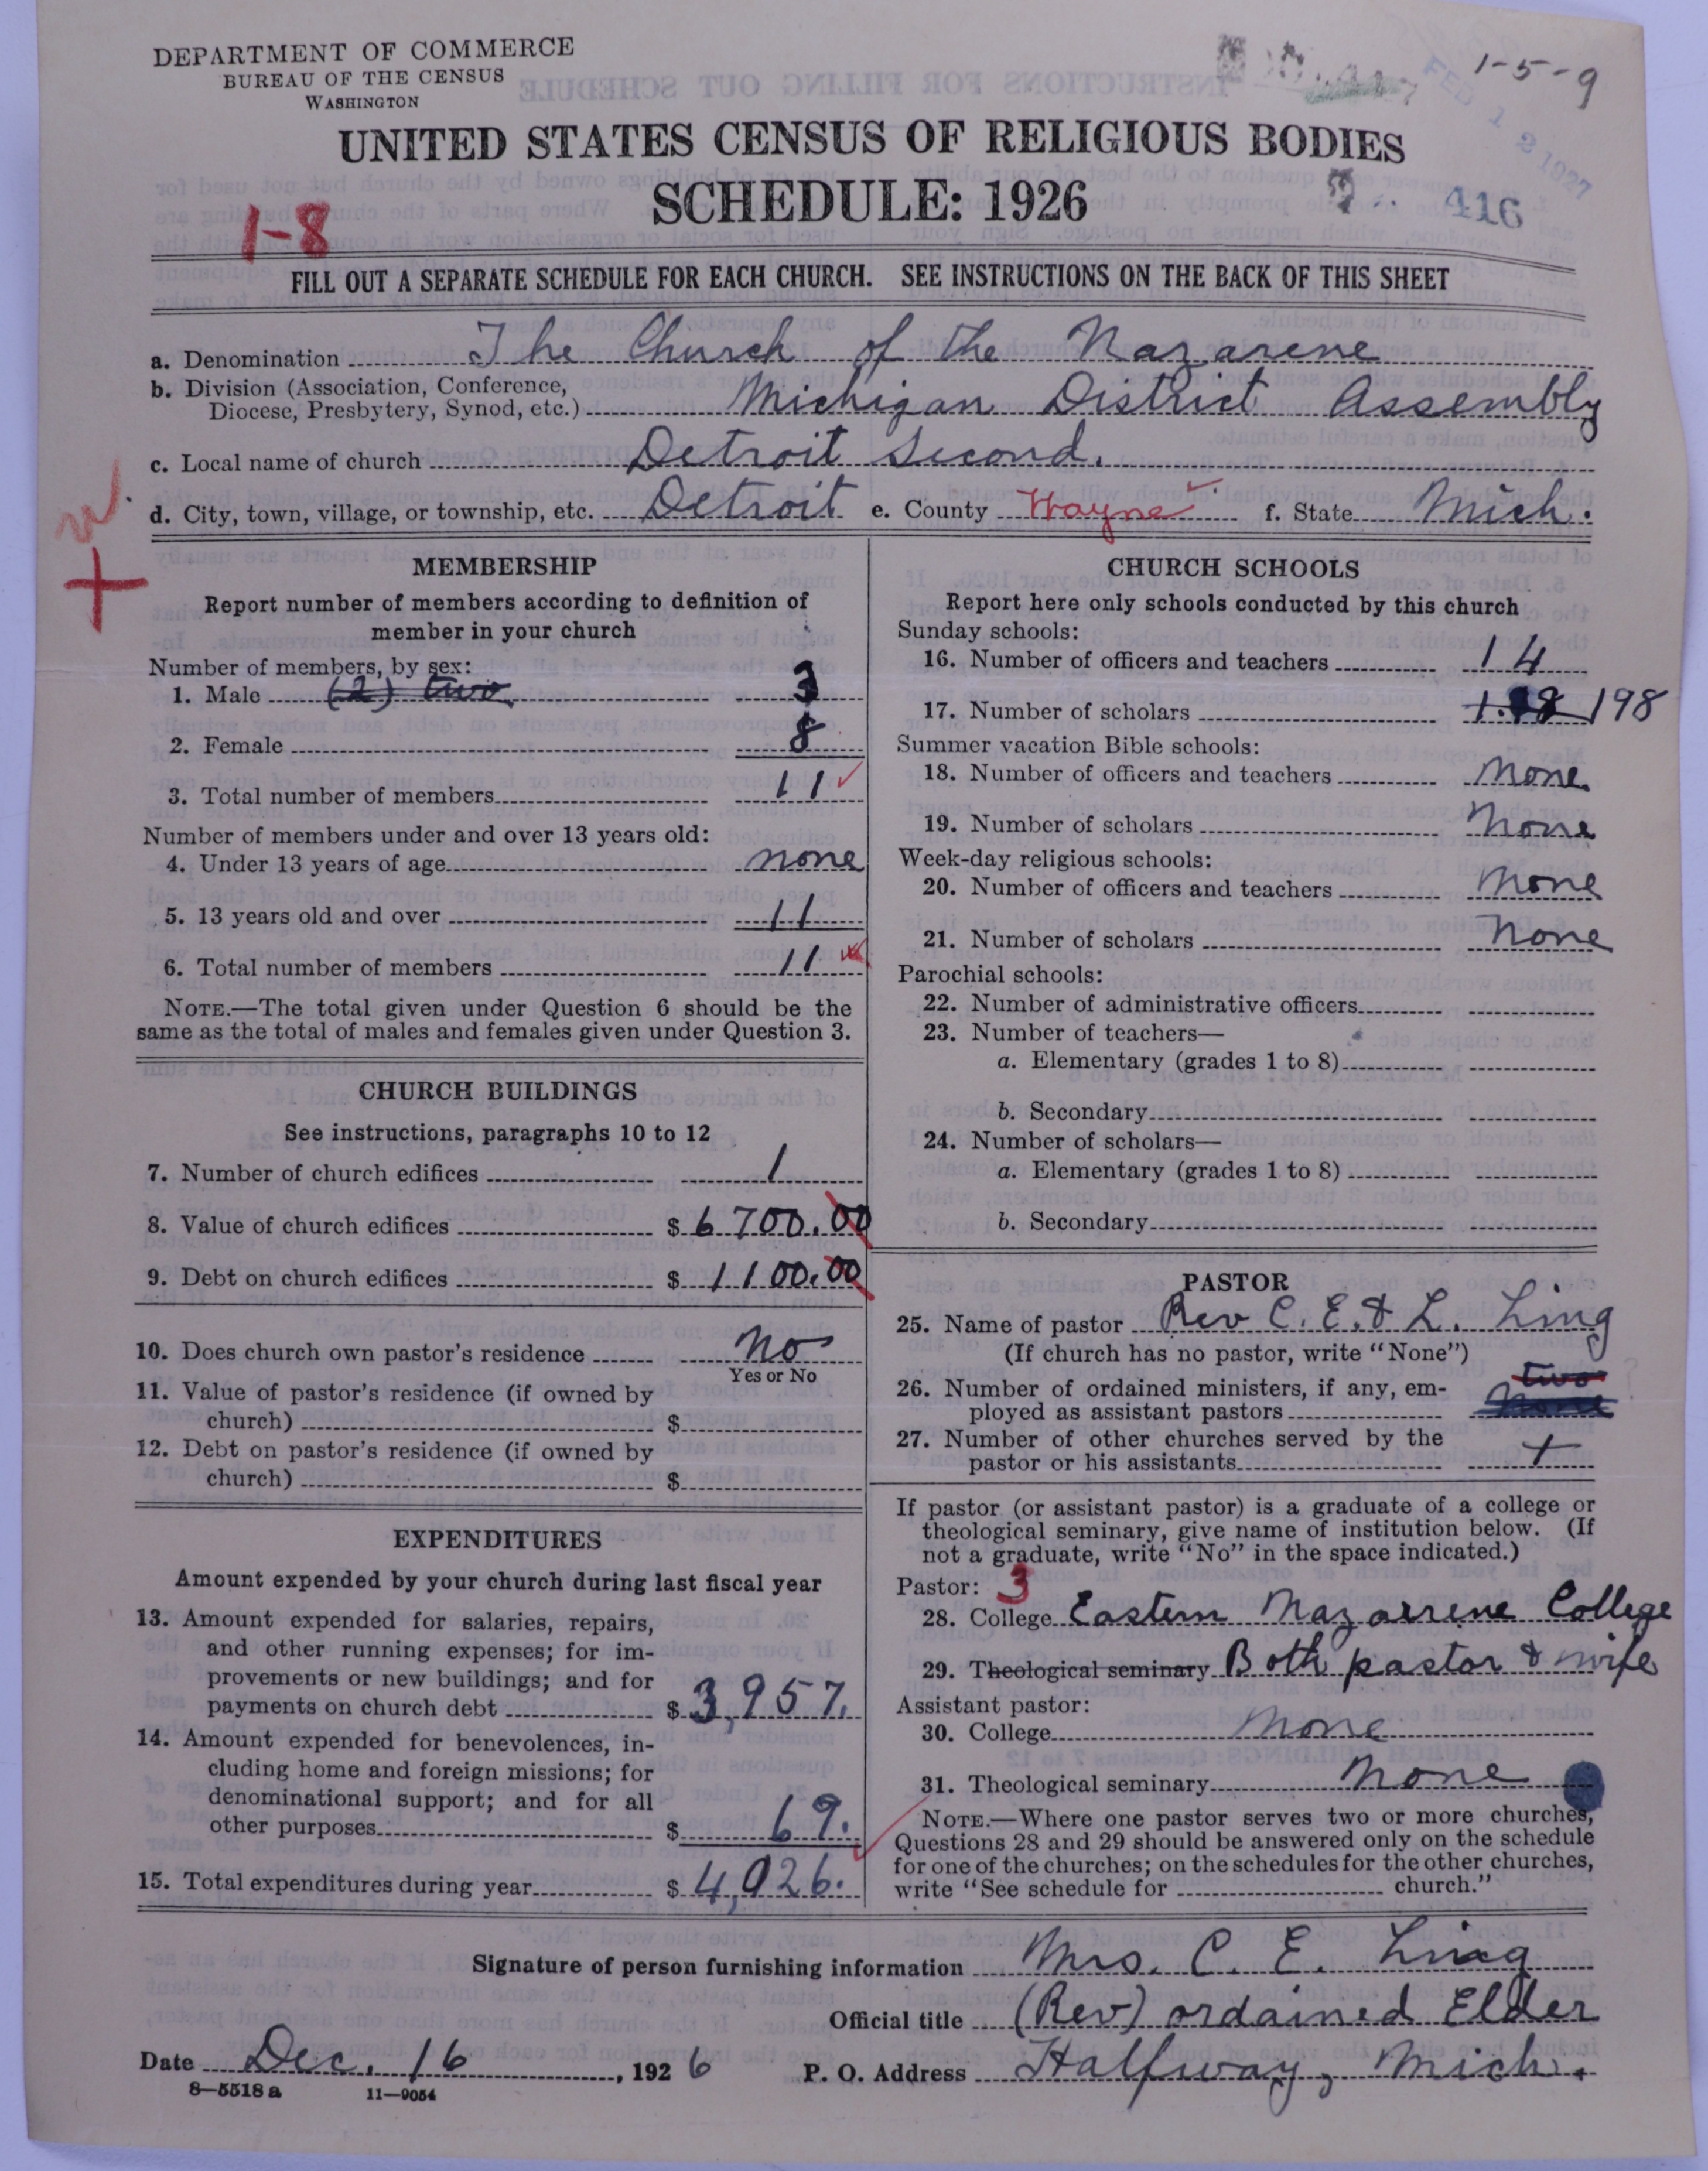 DEPARTMENT OF COMMERCE
BUREAU OF THE CENSUS
WASHINGTON
1-5-9
FEB 12 1927
UNITED STATES CENSUS OF RELIGIOUS BODIES
SCHEDULE: 1926
416
1-8
FILL OUT A SEPARATE SCHEDULE FOR EACH CHURCH. SEE INSTRUCTIONS ON THE BACK OF THIS SHEET
a. Denomination The Church of the Nazarene
b. Division (Association, Conference,
Diocese, Presbytery, Synod, etc.) Michigan District Assembly
c. Local name of church Detroit Second.
d. City, town, village, or township, etc. Detroit e. County Wayne f. State Mich.
MEMBERSHIP
Report number of members according to definition of
member in your church
Number of members, by sex:
1. Male (2) two 3
2. Female 8
3. Total number of members 11
Number of members under and over 13 years old:
4. Under 13 years of age none
5. 13 years old and over 11
6. Total number of members 11
NOTE.—The total given under Question 6 should be the
same as the total of males and females given under Question 3.
CHURCH BUILDINGS
See instructions, paragraphs 10 to 12
7. Number of church edifices 1
8. Value of church edifices $ 6700.00
9. Debt on church edifices $ 1100.00
10. Does church own pastor's residence No
Yes or No
11. Value of pastor's residence (if owned by
church) $
12. Debt on pastor's residence (if owned by
church) $
EXPENDITURES
Amount expended by your church during last fiscal year
13. Amount expended for salaries, repairs,
and other running expenses; for im-
provements or new buildings; and for
payments on church debt $ 3,957.
14. Amount expended for benevolences, in-
cluding home and foreign missions; for
denominational support; and for all
other purposes $ 69.
15. Total expenditures during year $ 4,026.
CHURCH SCHOOLS
Report here only schools conducted by this church
Sunday schools:
16. Number of officers and teachers 14
17. Number of scholars 198
Summer vacation Bible schools:
18. Number of officers and teachers None
19. Number of scholars None
Week-day religious schools:
20. Number of officers and teachers None
21. Number of scholars None
Parochial schools:
22. Number of administrative officers
23. Number of teachers—
a. Elementary (grades 1 to 8)
b. Secondary
24. Number of scholars—
a. Elementary (grades 1 to 8)
b. Secondary
PASTOR
25. Name of pastor Rev C. E. & L. Ling
(If church has no pastor, write "None")
two
26. Number of ordained ministers, if any, em-
ployed as assistant pastors None
27. Number of other churches served by the
pastor or his assistants
If pastor (or assistant pastor) is a graduate of a college or
theological seminary, give name of institution below. (If
not a graduate, write "No" in the space indicated.)
Pastor: 3
28. College Eastern Nazarene College
29. Theological seminary Both pastor & wife
Assistant pastor:
30. College None
31. Theological seminary None
NOTE.—Where one pastor serves two or more churches,
Questions 28 and 29 should be answered only on the schedule
for one of the churches; on the schedules for the other churches,
write "See schedule for church."
Signature of person furnishing information Mrs. C. E. Ling
Official title (Rev) ordained Elder
Date Dec. 16, 1926 P. O. Address Halfway, Mich.
8—5518 a 11—9054